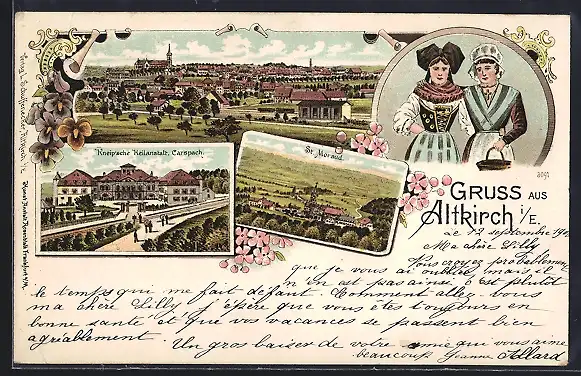 Kneip'sche Heilanstalt, Carspach.
St. Morand.
GRUSS AUS
Altkirch i/E.
Le 12 septembre
Ma chère Lilly
Vous croyez probablement
que je vous ai oublié, mais il
n'en est pas ainsi. C'est plutôt
le temps qui me fait défaut. Comment allez-vous
ma chère Lilly j'espère que vous êtes toujours en
bonne santé et que vos vacances se passent bien
agréablement. Un gros baiser de votre amie qui vous aime
beaucoup Jeanne Allard